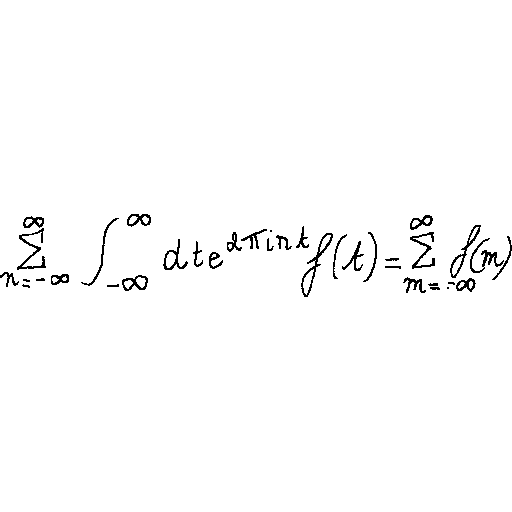 \sum_{n=-\infty}^{\infty} \int_{-\infty}^{\infty} dt e^{2\pi i n t} f(t) = \sum_{m=-\infty}^{\infty} f(m)